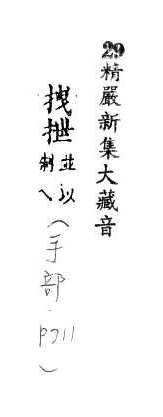 29精嚴新集大藏音
拽抴
並以
制
（手部．P711）